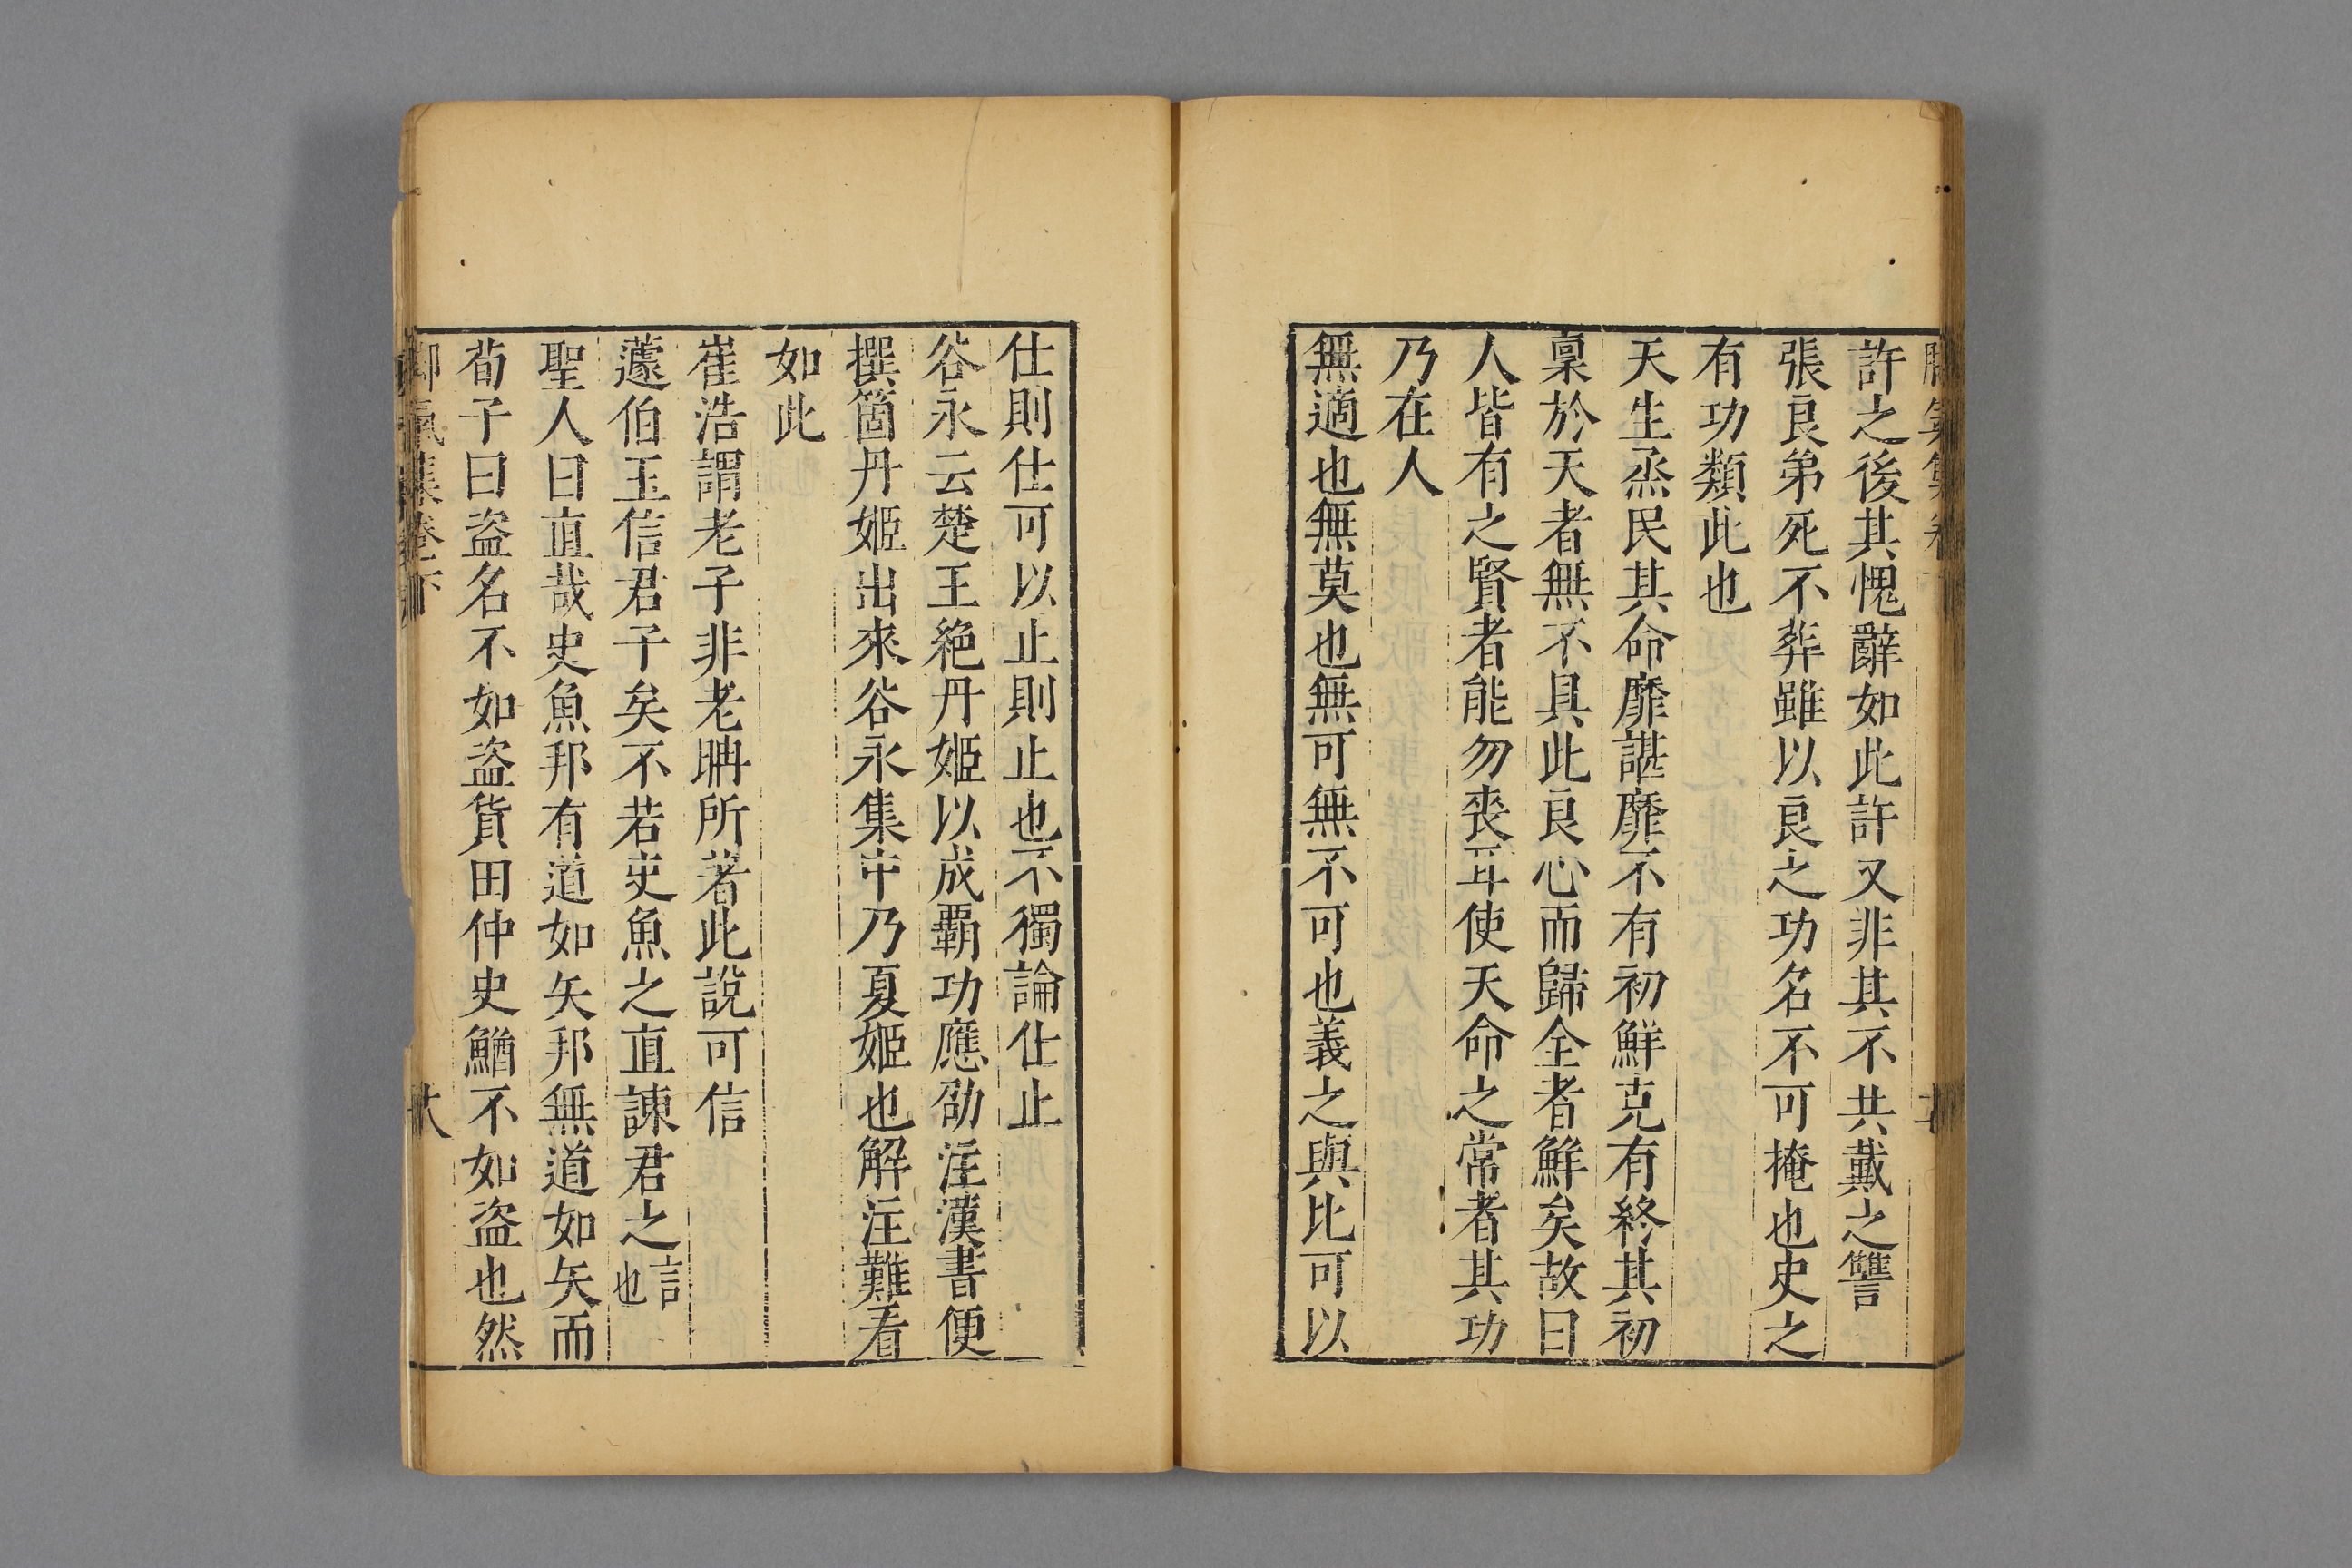 許之後其愧辭如此許又非其不共戴之讐
張良弟死不葬雖以良之功名不可掩也史之
有功類此也
天生烝民其命靡諶靡不有初鮮克有終其初
稟於天者無不具此良心而歸全者鮮矣故曰
人皆有之賢者能勿喪耳使天命之常者其功
乃在人
無適也無莫也無可無不可也義之與比可以
仕則仕可以止則止也不獨論仕止
谷永云楚王絶丹姬以成覇功應劭注漢書便
撰箇丹姬出來谷永集中乃夏姬也解注難看
如此
崔浩謂老子非老聃所著此說可信
蘧伯玉信君子矣不若史魚之直諫君之言也
聖人曰直哉史魚邦有道如矢邦無道如矢而
荀子曰盗名不如盗貨田仲史鰌不如盗也然
脚氣集卷下